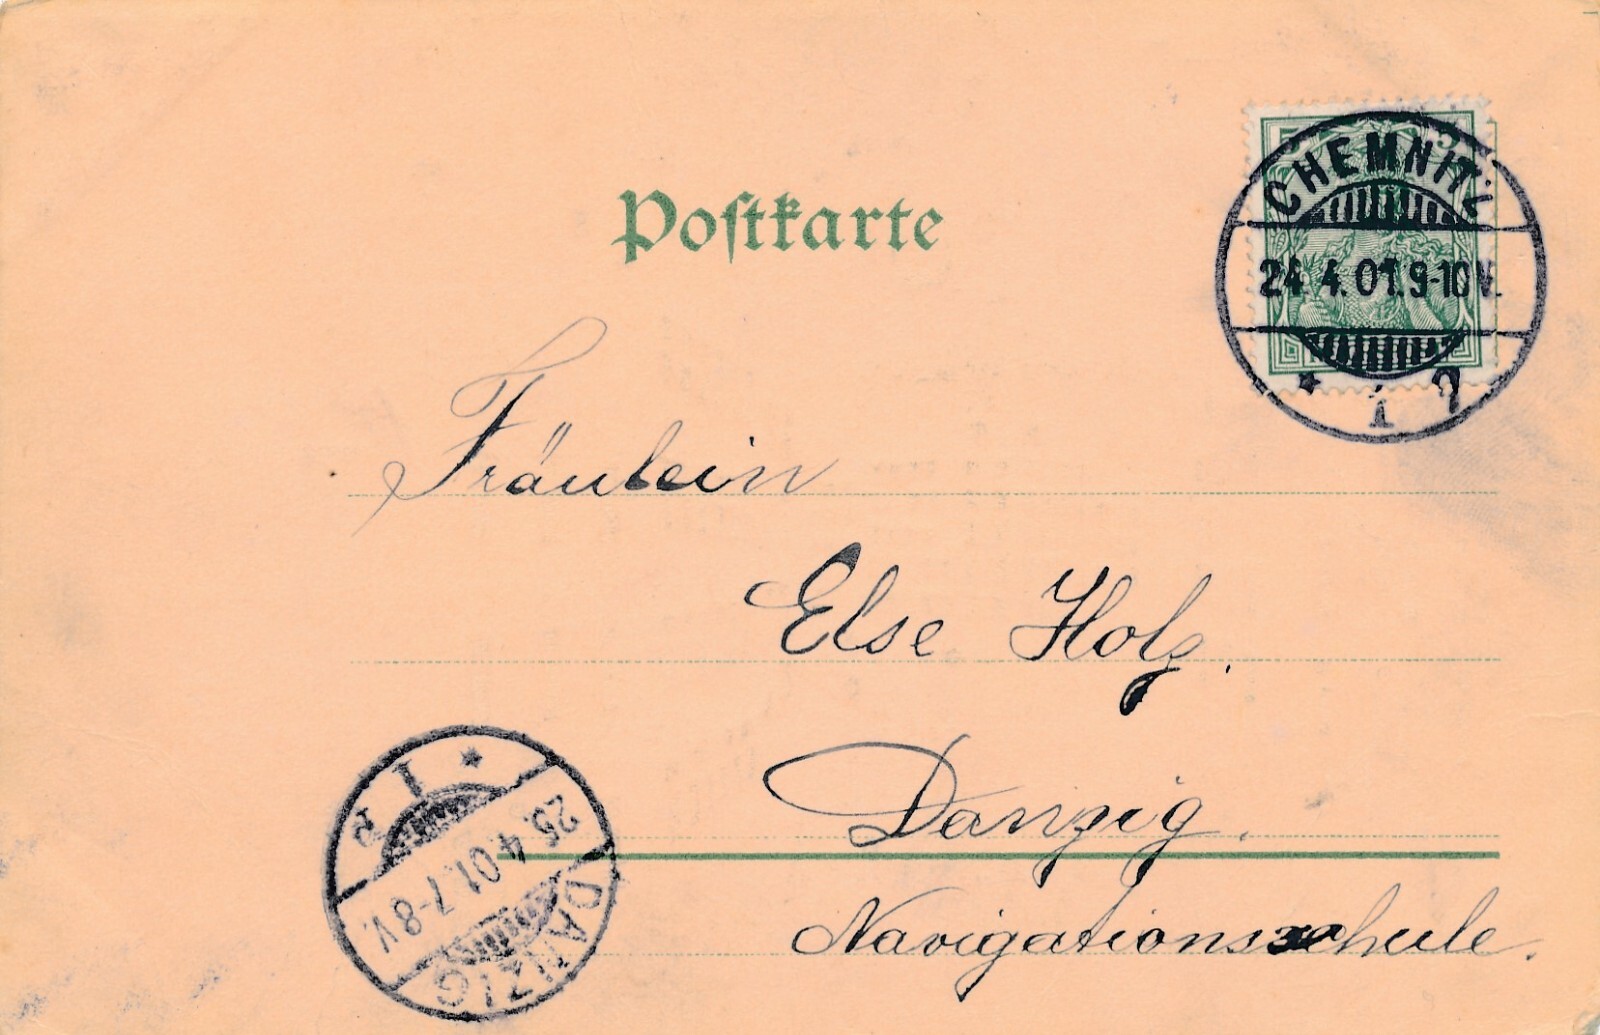 Postkarte
5 5
CHEMNITZ
24.4.01.9-10V.
* 1
Fräulein
Else Holz.
Danzig.
Navigationsschule.
* 1
25.4.01.7-8V.
DANZIG